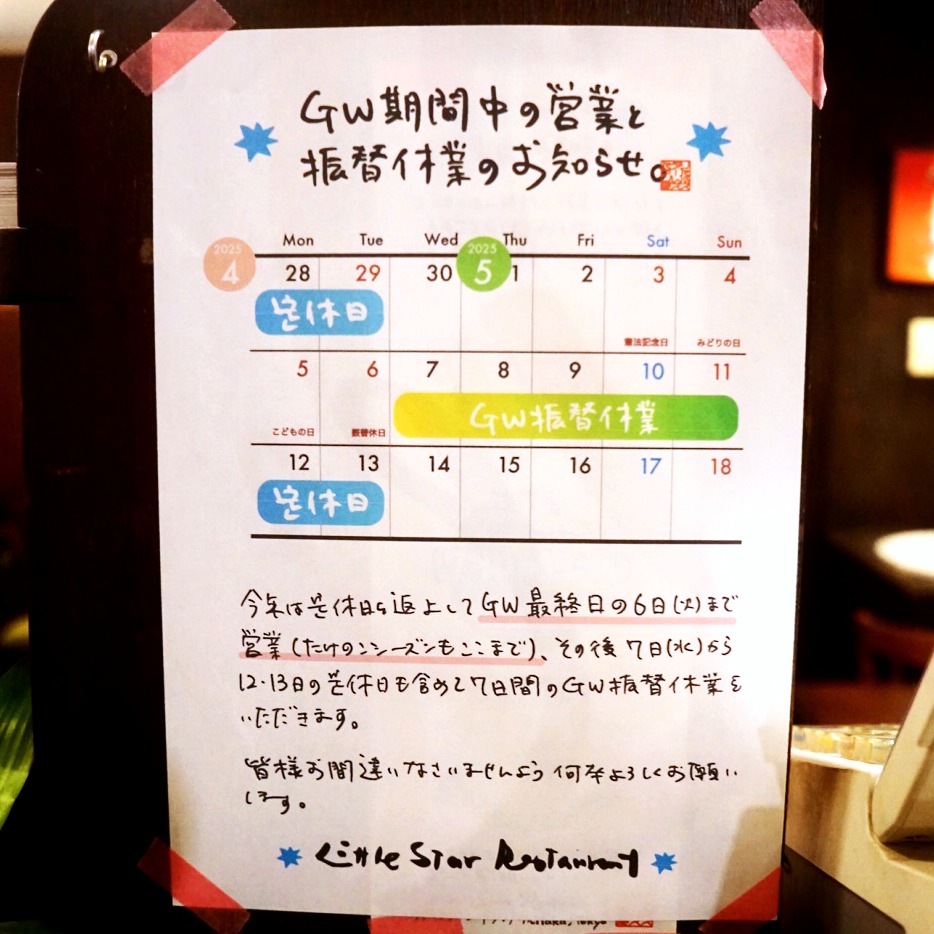 GW期間中の営業と
振替休業のお知らせ。
2025 4 Mon Tue Wed 2025 5 Thu Fri Sat Sun
28 29 30 1 2 3 4
定休日
憲法記念日 みどりの日
5 6 7 8 9 10 11
GW振替休業
こどもの日 振替休日
12 13 14 15 16 17 18
定休日
今年は定休日も返上してGW最終日の6日(火)まで
営業(たけのこシーズンもここまで)、その後7日(水)から
12・13日の定休日も含めて7日間のGW振替休業を
いただきます。
皆様お間違いなさいませんよう何卒よろしくお願い
します。
Little Star Restaurant